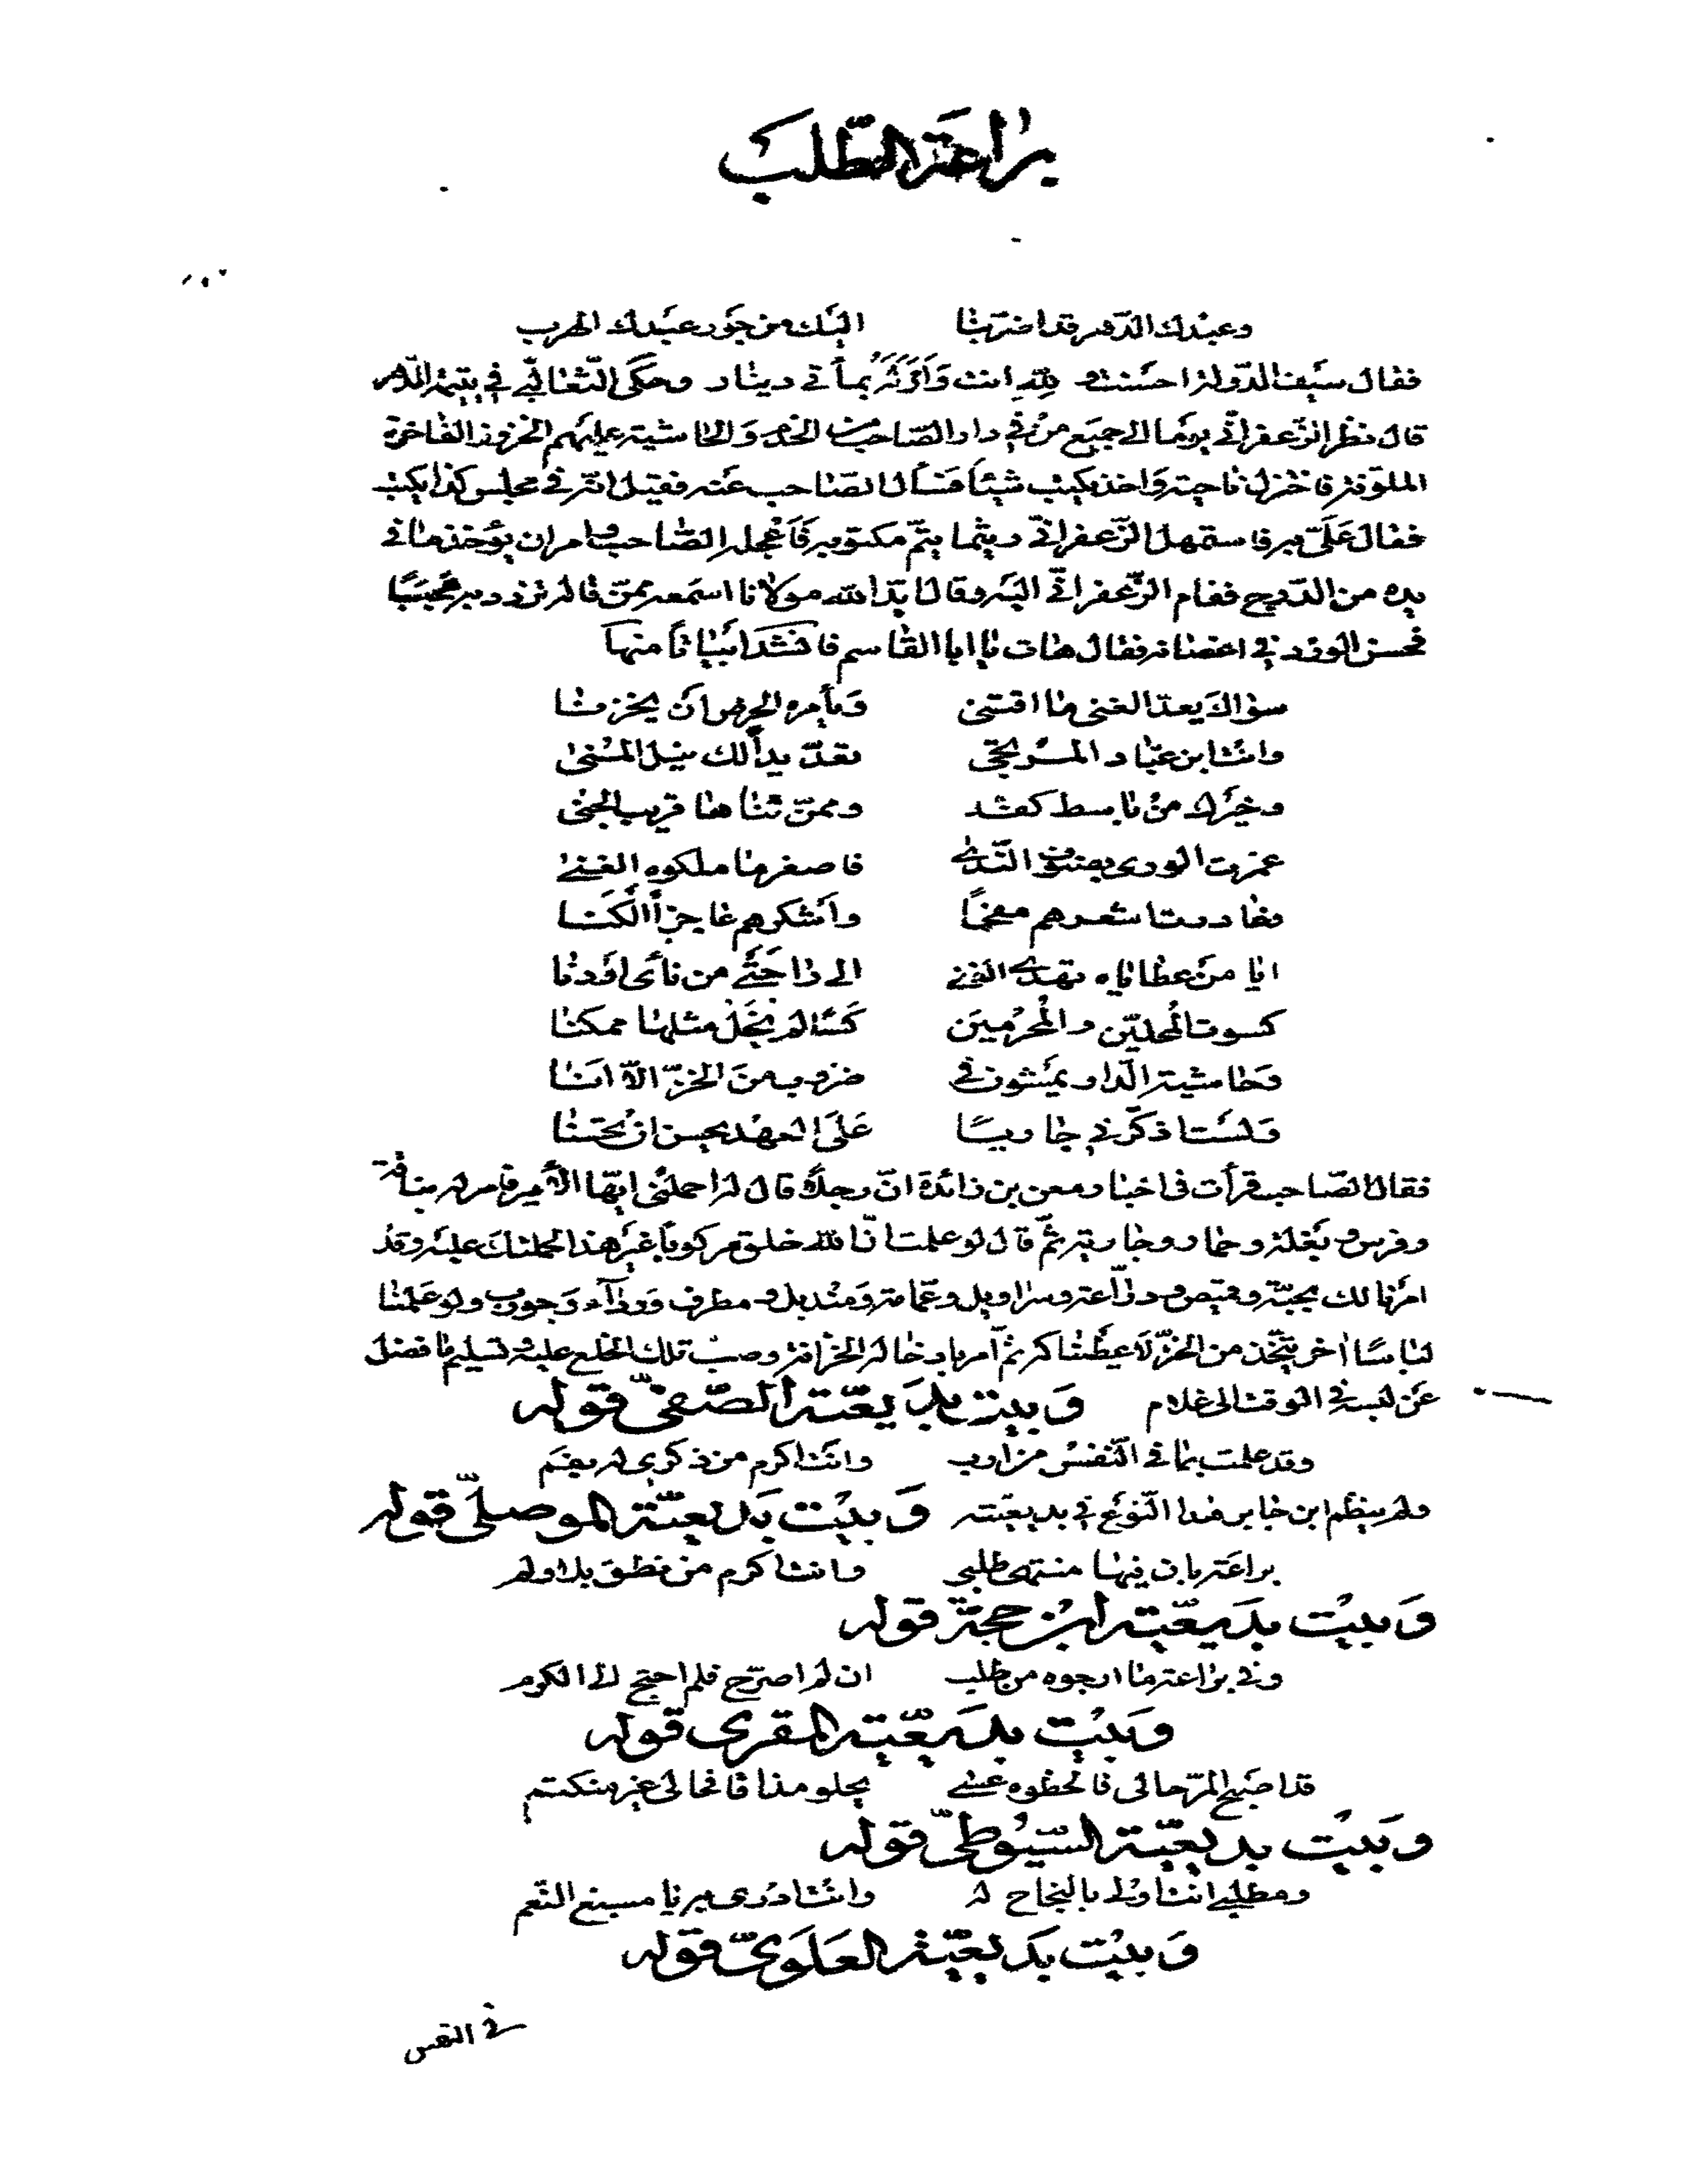 براعة الطلب
وعبدك الدهر قد اضر بنا اليك من جور عبدك الهرب
فقال سيف الدولة احسنت ولله انت وَأمَرَ لَهُ بمأتي دينار وحكى الثعالبي في يتيمة الدهر
قال نظر الزعفراني يومًا الى جميع من في دار الصاحب من الخدم والحاشية عليهم الخزوز الفاخرة
الملونة فاعتزل ناحية وَاخذ يكتب شيئًا فسأل الصاحب عنه فقيل انه في مجلس كذا يكتب
فقال عَلَيّ به فاستمهل الزعفراني ريثما يتمّ مكتوبه فَاَعْجله الصاحب وامر ان يؤخذ ما في
يده من الدرج فقام الزعفراني اليه وقال ايّد الله مولانا اسمعه ممّن قاله تزدد به عُجبًا
فحسن الورد في اغصانه فقال هات يا ابا القاسم فانشد ابياتًا منها
سواك يعدّ الغنى ما اقتنى وَيأمره الحرص ان يخزنا
وانت ابن عبّاد المرتجى تعدّ يدأَلك نيل المنى
وخيرك من باسط كفه وممن ثناها قريب الجنى
غمرت الورى بصنوف الندى فاصغر ما ملكوه الغنى
وغادرت اشعرهم مفحمًا واشكرهم عاجزًا الكنا
ايا من عطاياه تهدي الغنى الى راحَتَي من نأى او دنا
كسوت المحلّين والمُحرُميَن كسًا لم نخَل مثلها ممكنا
وَحاشية الدار يمشون في ضروب من الخزّ الاّ انا
وَلست اذكّر بي جاريًا عَلى العهد يحسن ان يحسنا
فقال الصاحب قرأت في اخبار معن بن زائدة انّ رجلاً قال له احملني ايها الأمير فامر له بناقة
وفرس وبَغلة وحمار وجارية ثمّ قال لو علمت انّ الله خلق مركوبًا غير هذا لحملتك عليه وقد
امرنا لك بجبّة وقميص ودرّاعة وسراويل وعمّامة وَمنديل ومطرف وَرداء وَجورب ولو علمنا
لباسًا اخر يتّخذ من الخزّ لاَعطيناكه ثمّ امر بادخاله الخزانة وصبّ تلك الخلع عليه وتسليم ما فضل
عَن لبسه في الوقت الى غلامه وَبيت بدَيعيّة الصّفيّ قوله
وقد علمت بما في النفس من ارب وانت اكرم من ذكري له بفم
ولم ينظم ابن جابر هذا النّوع في بديعيّته وَبيت بَديعيّة الموصليّ قوله
براعة بان فيها منتهى طلبي وانت اكرم من نطق بلا ولم
وَبيت بدَيعيّة ابن حجة قوله
وفي براعة ما ارجوه من طلب ان لم اصرّح فلم احتج الى الكلم
وبيت بدَيعيّة المقرى قوله
قد اصبح المرّ حالي فالحظوه عسى يحلو مذاقًا فحالي غير منكتم
وبَيت بديعيّة السّيوطيّ قوله
ومطلبي انت اولى بالنجاح له وانت ادرى به يا مسبغ النّعم
وَبيت بَديعيّة العَلَويّ قوله
في النفس